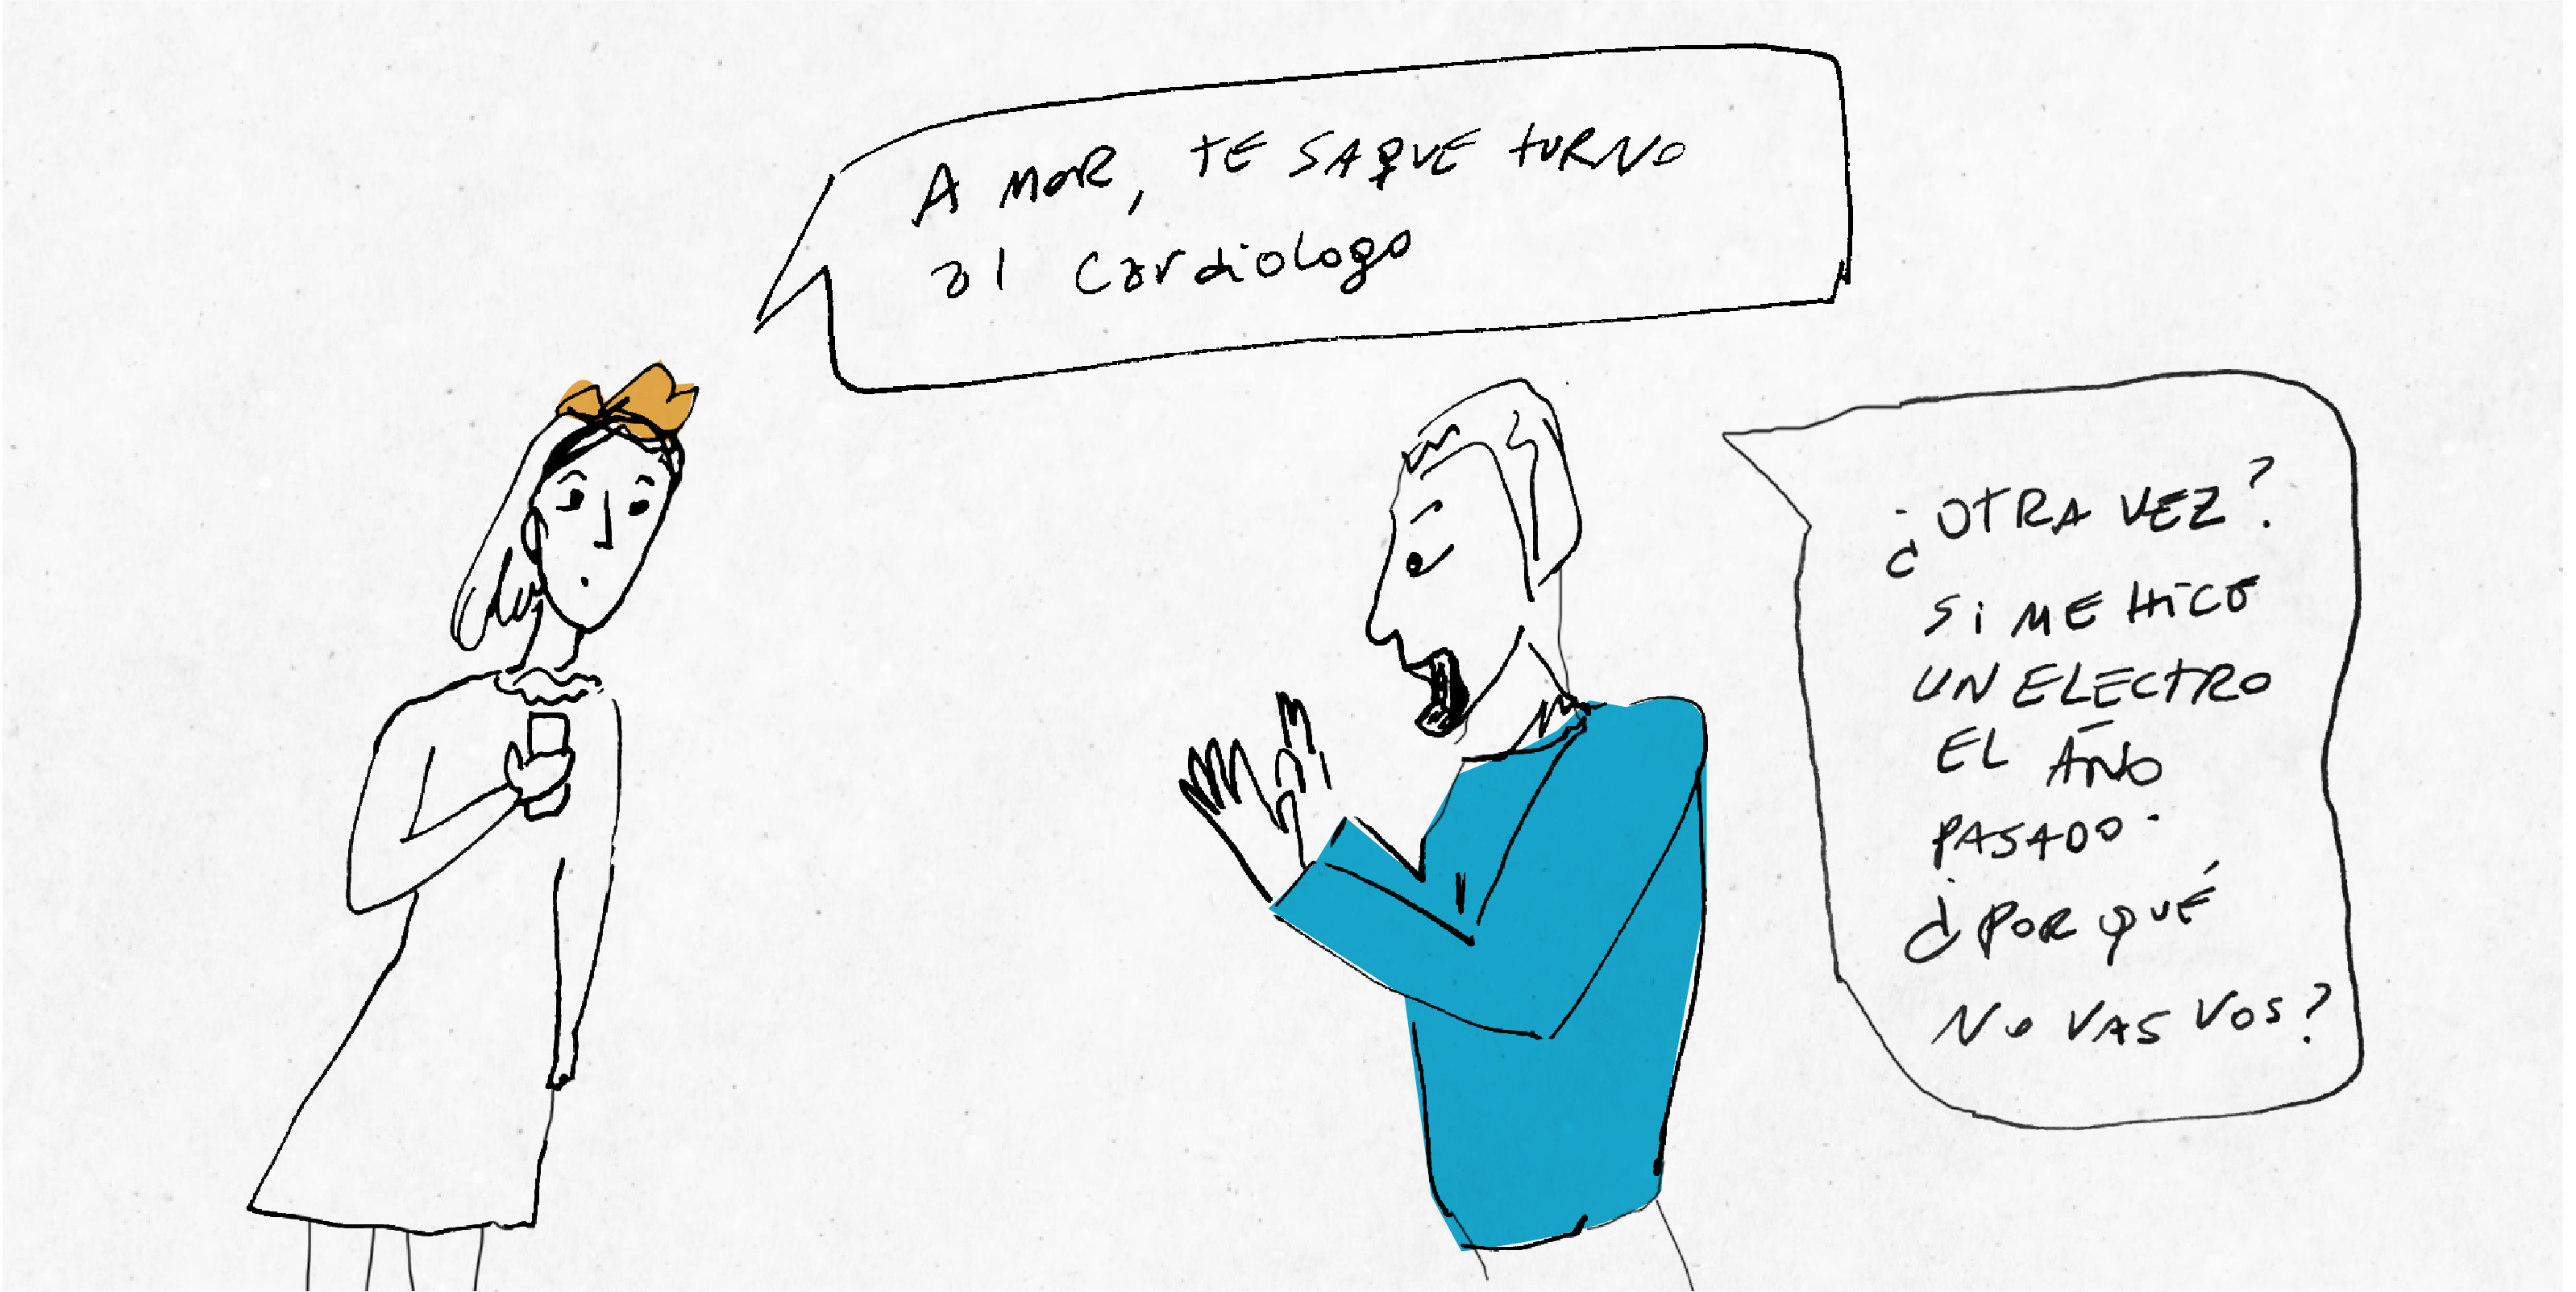 AMOR, TE SAQUE TURNO
al Cardiologo
¿OTRA VEZ?
SI ME HICE
UN ELECTRO
EL AÑO
PASADO.
¿POR QUÉ
NO VAS VOS?